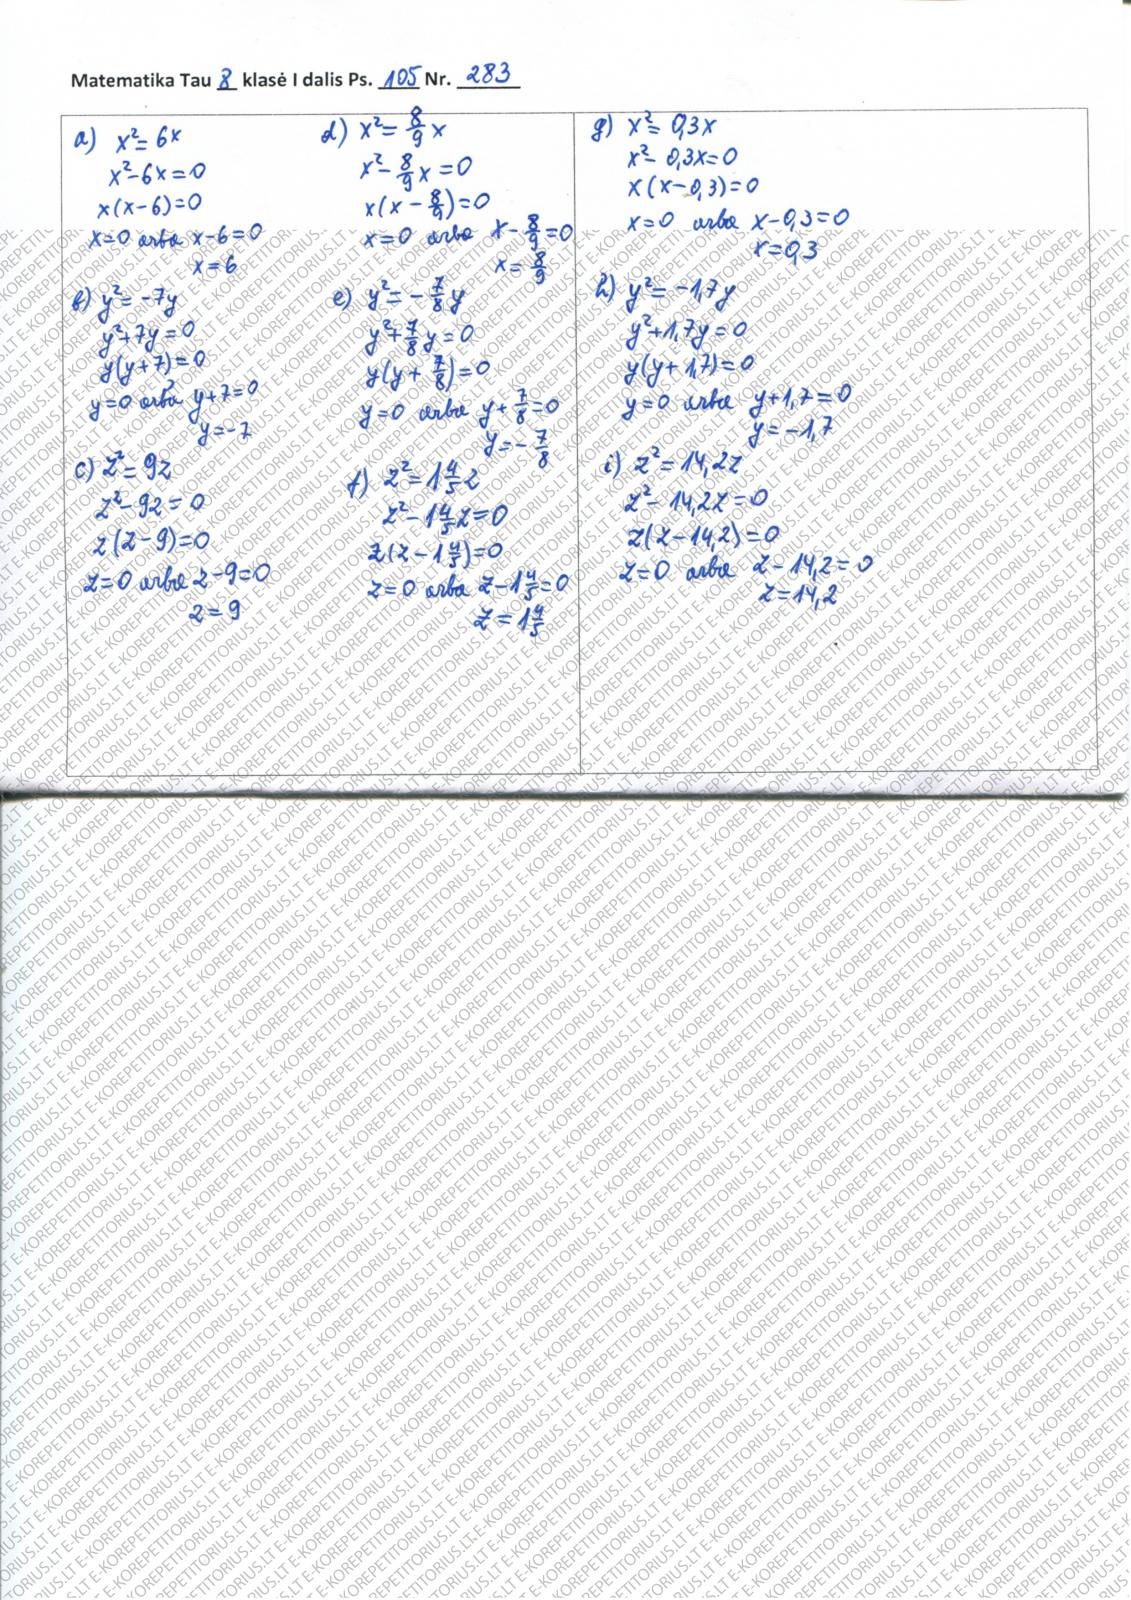 Matematika Tau 8 klasė I dalis Ps. 105 Nr. 283
a) x² = 6x
x² - 6x = 0
x(x - 6) = 0
x = 0 arba x - 6 = 0
x = 6
b) y² = -7y
y² + 7y = 0
y(y + 7) = 0
y = 0 arba y + 7 = 0
y = -7
c) z² = 9z
z² - 9z = 0
z(z - 9) = 0
z = 0 arba z - 9 = 0
z = 9
d) x² = 8/9 x
x² - 8/9 x = 0
x(x - 8/9) = 0
x = 0 arba x - 8/9 = 0
x = 8/9
e) y² = - 7/8 y
y² + 7/8 y = 0
y(y + 7/8) = 0
y = 0 arba y + 7/8 = 0
y = - 7/8
f) z² = 1 4/5 z
z² - 1 4/5 z = 0
z(z - 1 4/5) = 0
z = 0 arba z - 1 4/5 = 0
z = 1 4/5
g) x² = 0,3x
x² - 0,3x = 0
x(x - 0,3) = 0
x = 0 arba x - 0,3 = 0
x = 0,3
h) y² = -1,7y
y² + 1,7y = 0
y(y + 1,7) = 0
y = 0 arba y + 1,7 = 0
y = -1,7
i) z² = 14,2z
z² - 14,2z = 0
z(z - 14,2) = 0
z = 0 arba z - 14,2 = 0
z = 14,2
E-KOREPETITORIUS.LT